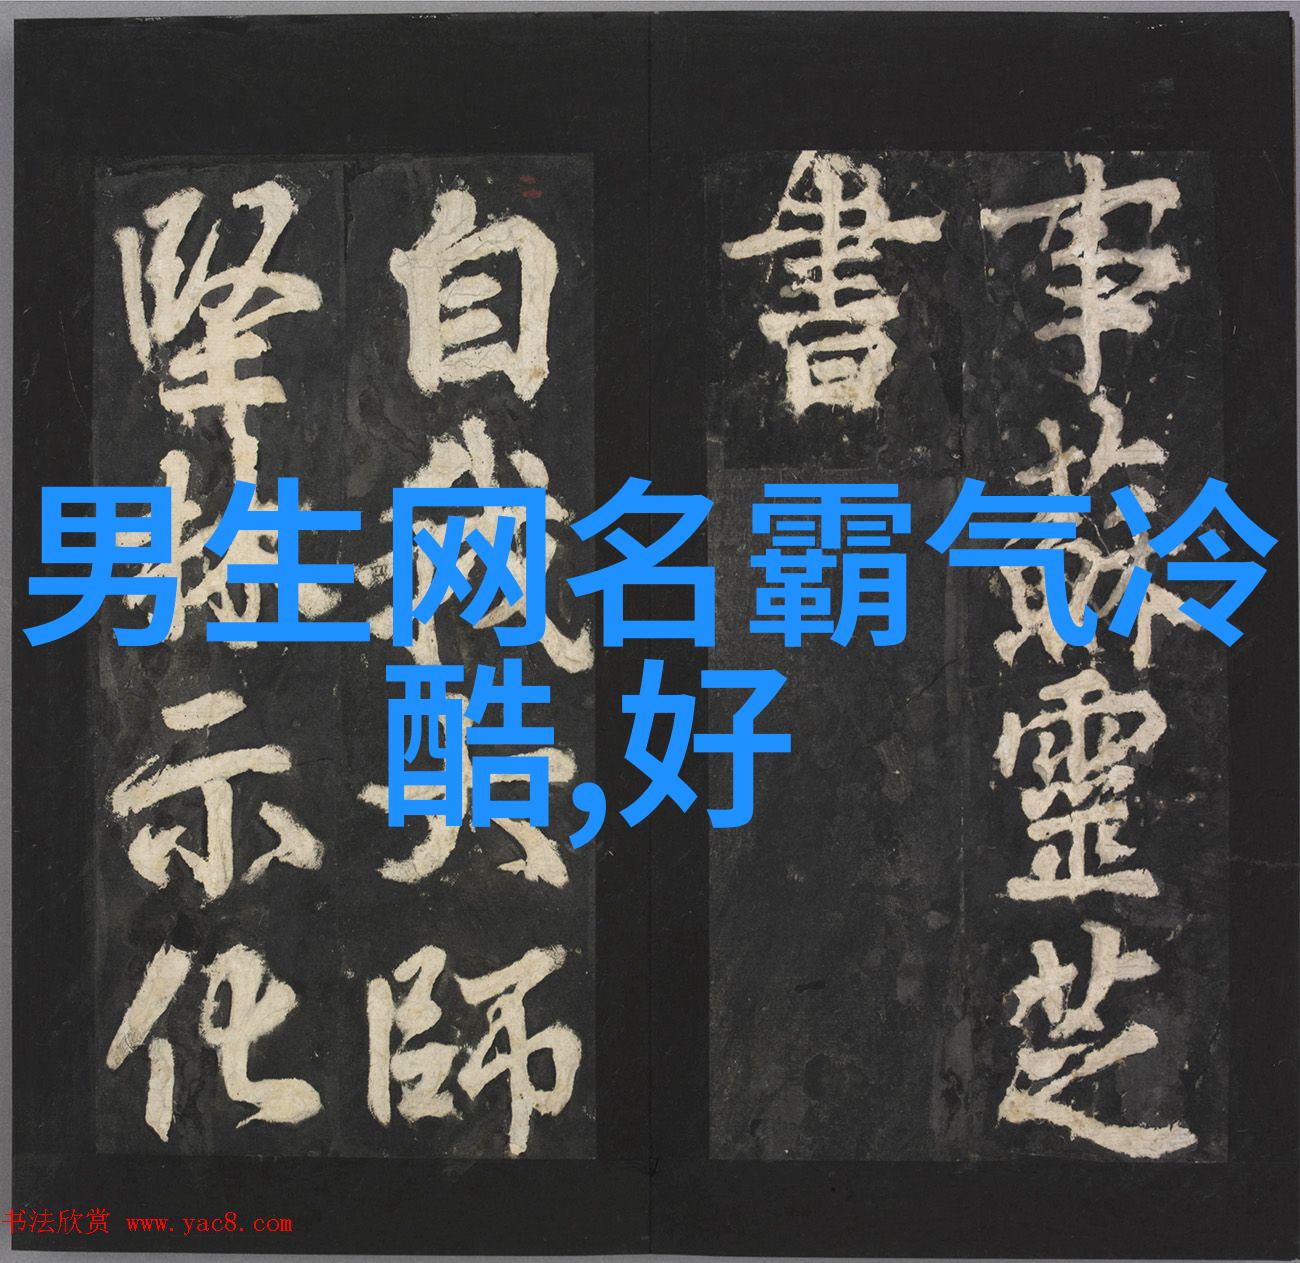 事蘇靈芝
書
自我大師
示化
男生网名霸气冷
酷,好
书法欣赏 www.yac8.com